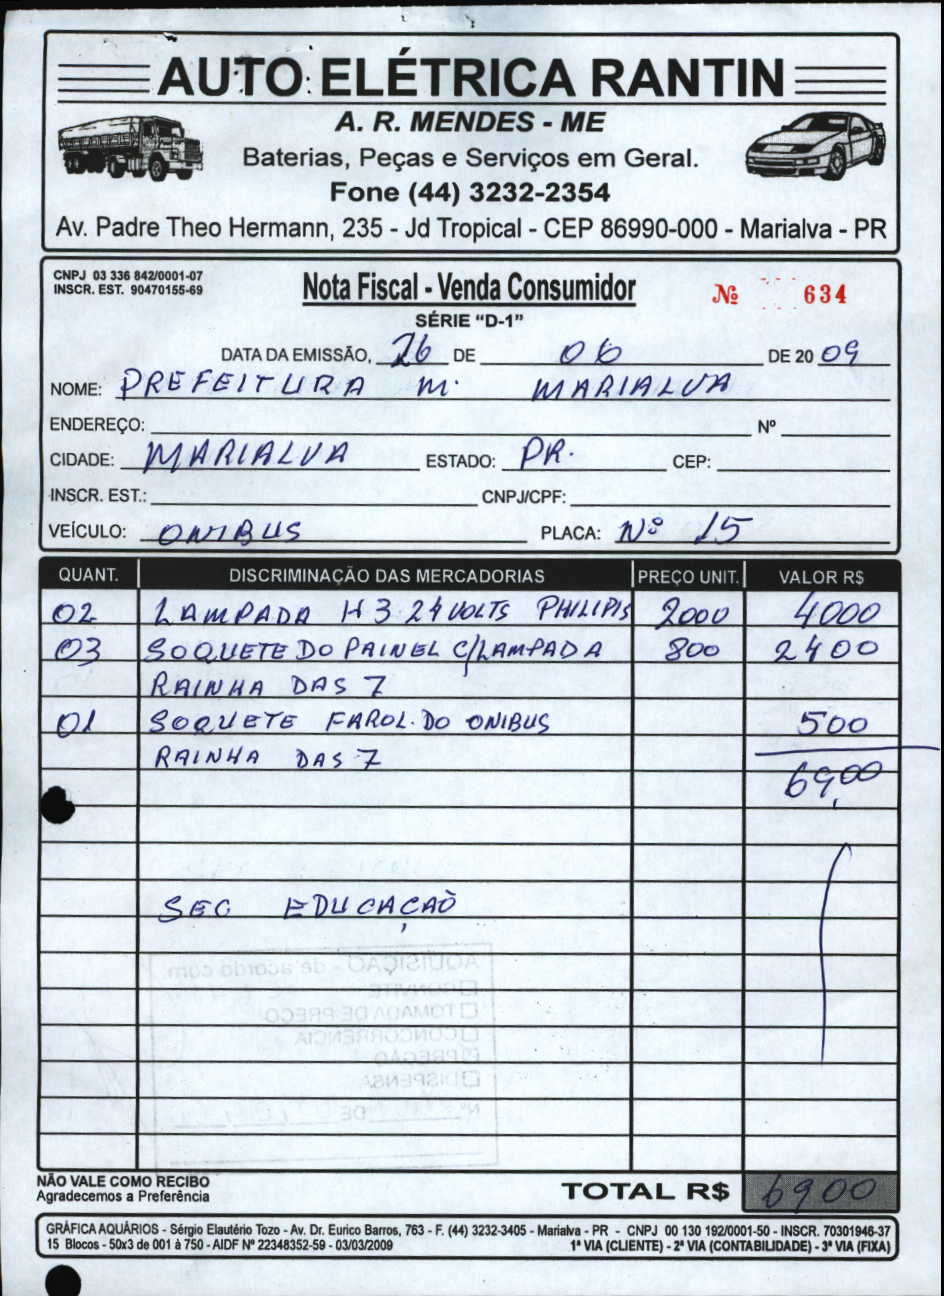 AUTO ELÉTRICA RANTIN
A. R. MENDES - ME
Baterias, Peças e Serviços em Geral.
Fone (44) 3232-2354
Av. Padre Theo Hermann, 235 - Jd Tropical - CEP 86990-000 - Marialva - PR
CNPJ 03 336 842/0001-07
INSCR. EST. 90470155-69
Nota Fiscal - Venda Consumidor
Nº 634
SÉRIE "D-1"
DATA DA EMISSÃO, 26 DE 06 DE 2009
NOME: PREFEITURA M. MARIALVA
ENDEREÇO: Nº
CIDADE: MARIALVA ESTADO: PR. CEP:
INSCR. EST.: CNPJ/CPF:
VEÍCULO: ONIBUS PLACA: Nº 15
QUANT. DISCRIMINAÇÃO DAS MERCADORIAS PREÇO UNIT. VALOR R$
02 LAMPADA H3 24 VOLTS PHILIPIS 2000 4000
03 SOQUETE DO PAINEL C/LAMPADA 800 2400
RAINHA DAS 7
01 SOQUETE FAROL DO ONIBUS 500
RAINHA DAS 7
69,00
SEC EDUCAÇÃO
AQUISIÇÃO - de acordo com
CONVITE
TOMADA DE PREÇO
CONCORRÊNCIA
PREGÃO
DISPENSA
Nº DE
NÃO VALE COMO RECIBO
Agradecemos a Preferência
TOTAL R$ 6900
GRÁFICA AQUÁRIOS - Sérgio Elautério Tozo - Av. Dr. Eurico Barros, 763 - F. (44) 3232-3405 - Marialva - PR - CNPJ 00 130 192/0001-50 - INSCR. 70301946-37
15 Blocos - 50x3 de 001 à 750 - AIDF Nº 22348352-59 - 03/03/2009
1ª VIA (CLIENTE) - 2ª VIA (CONTABILIDADE) - 3ª VIA (FIXA)